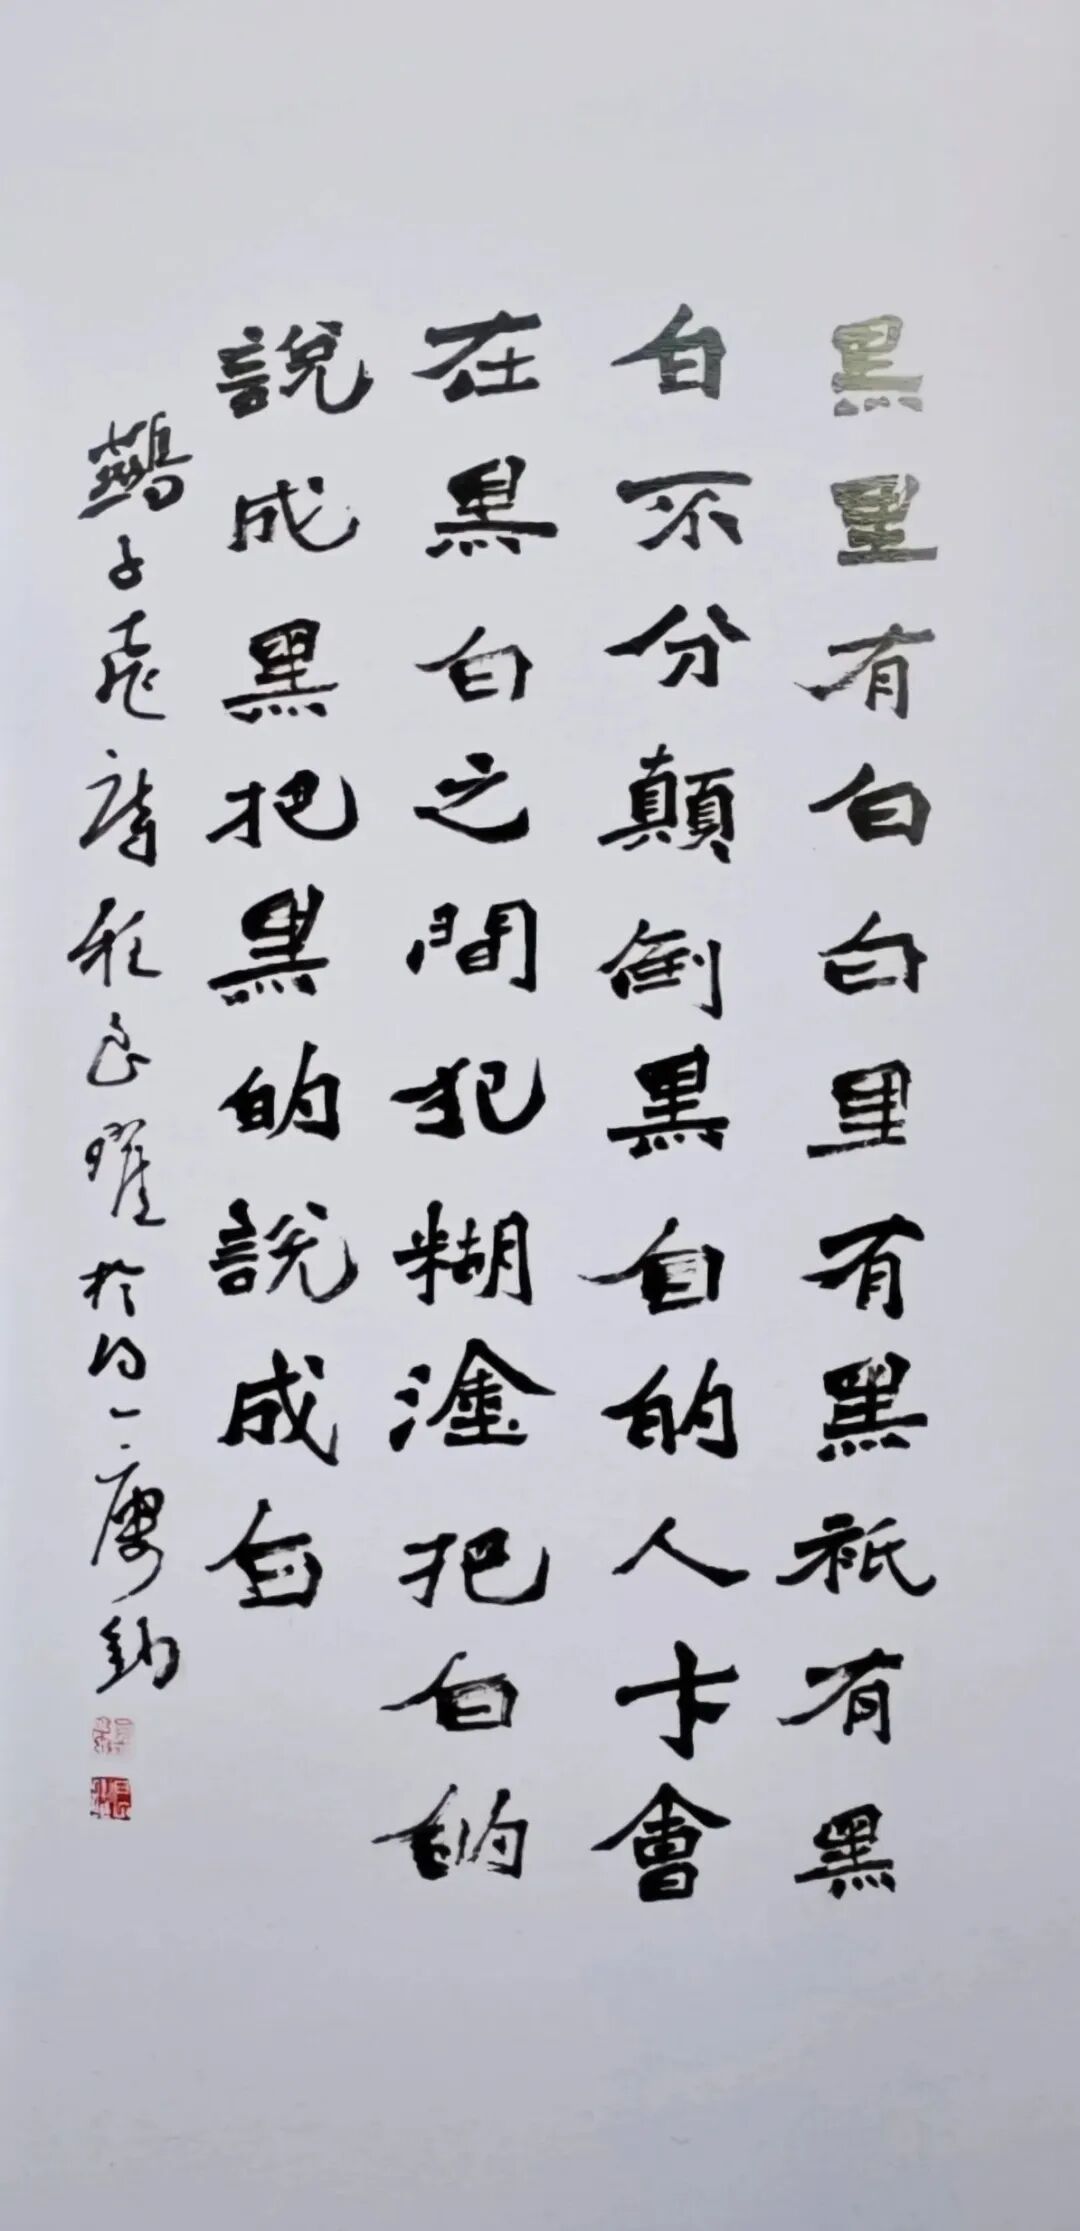 黑里有白白里有黑祇有黑
白不分顛倒黑白的人才會
在黑白之間犯糊塗把白的
說成黑把黑的說成白
子於一